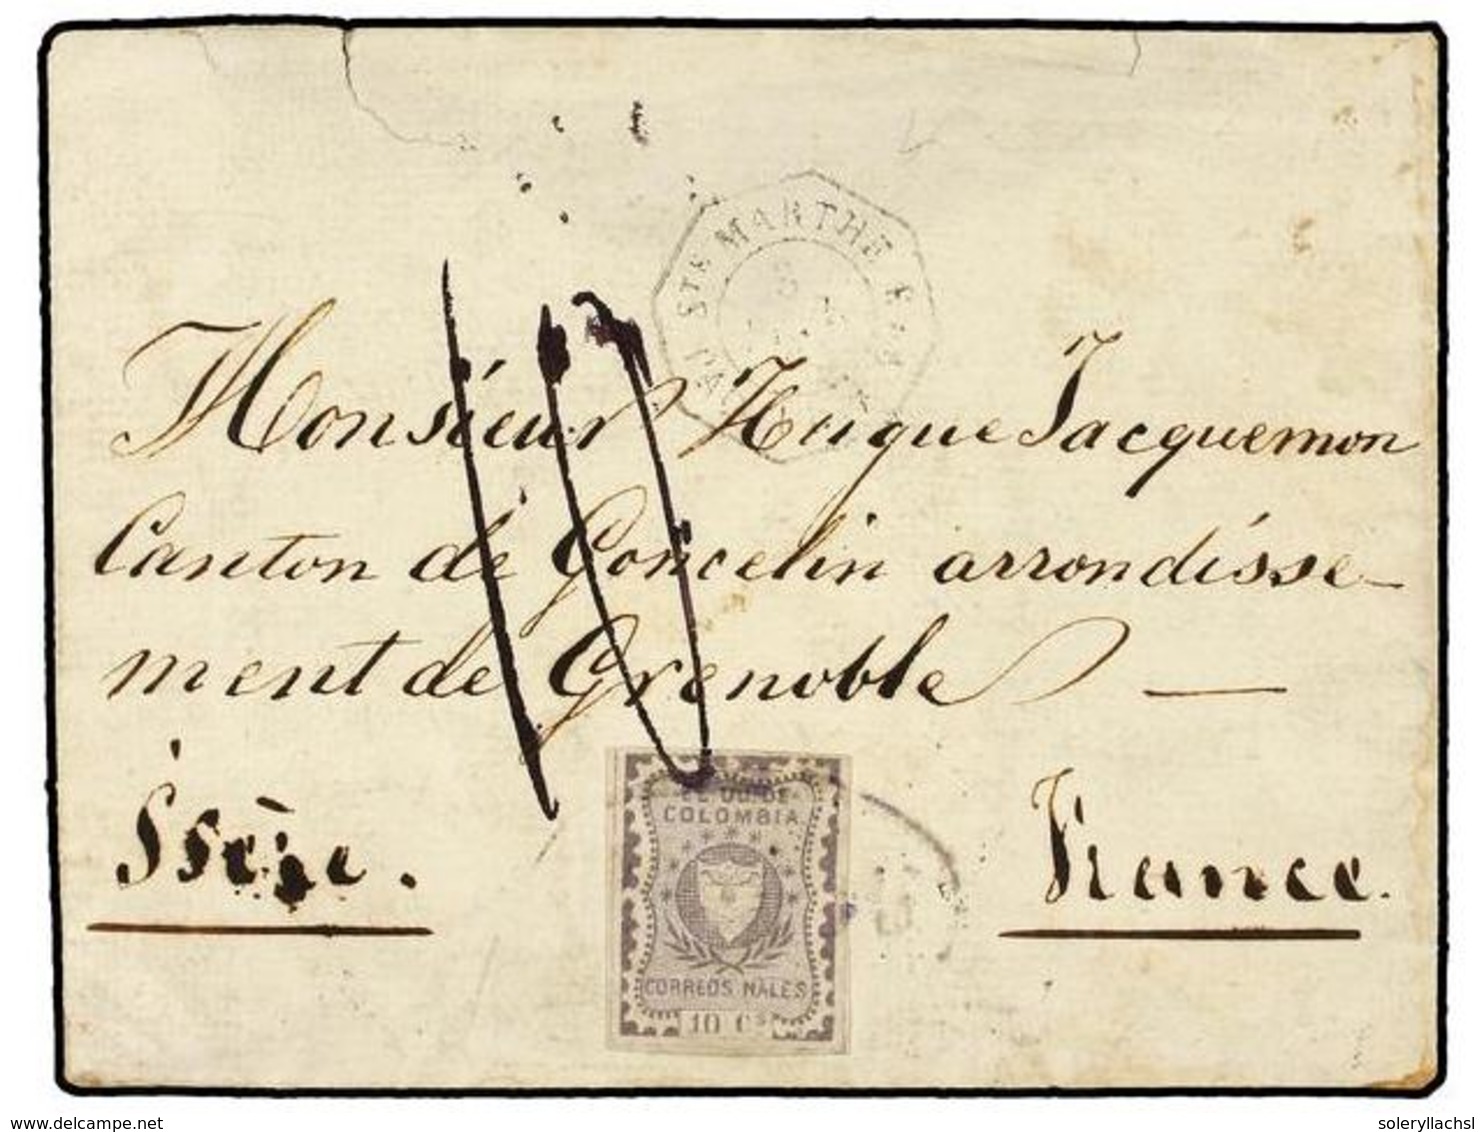 STE MARTHE
Monsieur Hugue Jacquemon
Canton de Goncelin arrondisse-
ment de Grenoble —
Isère.
France.
10
EE. UU. DE
COLOMBIA
CORREOS NALES
10 Cs
www.delcampe.net
soleryllachsl